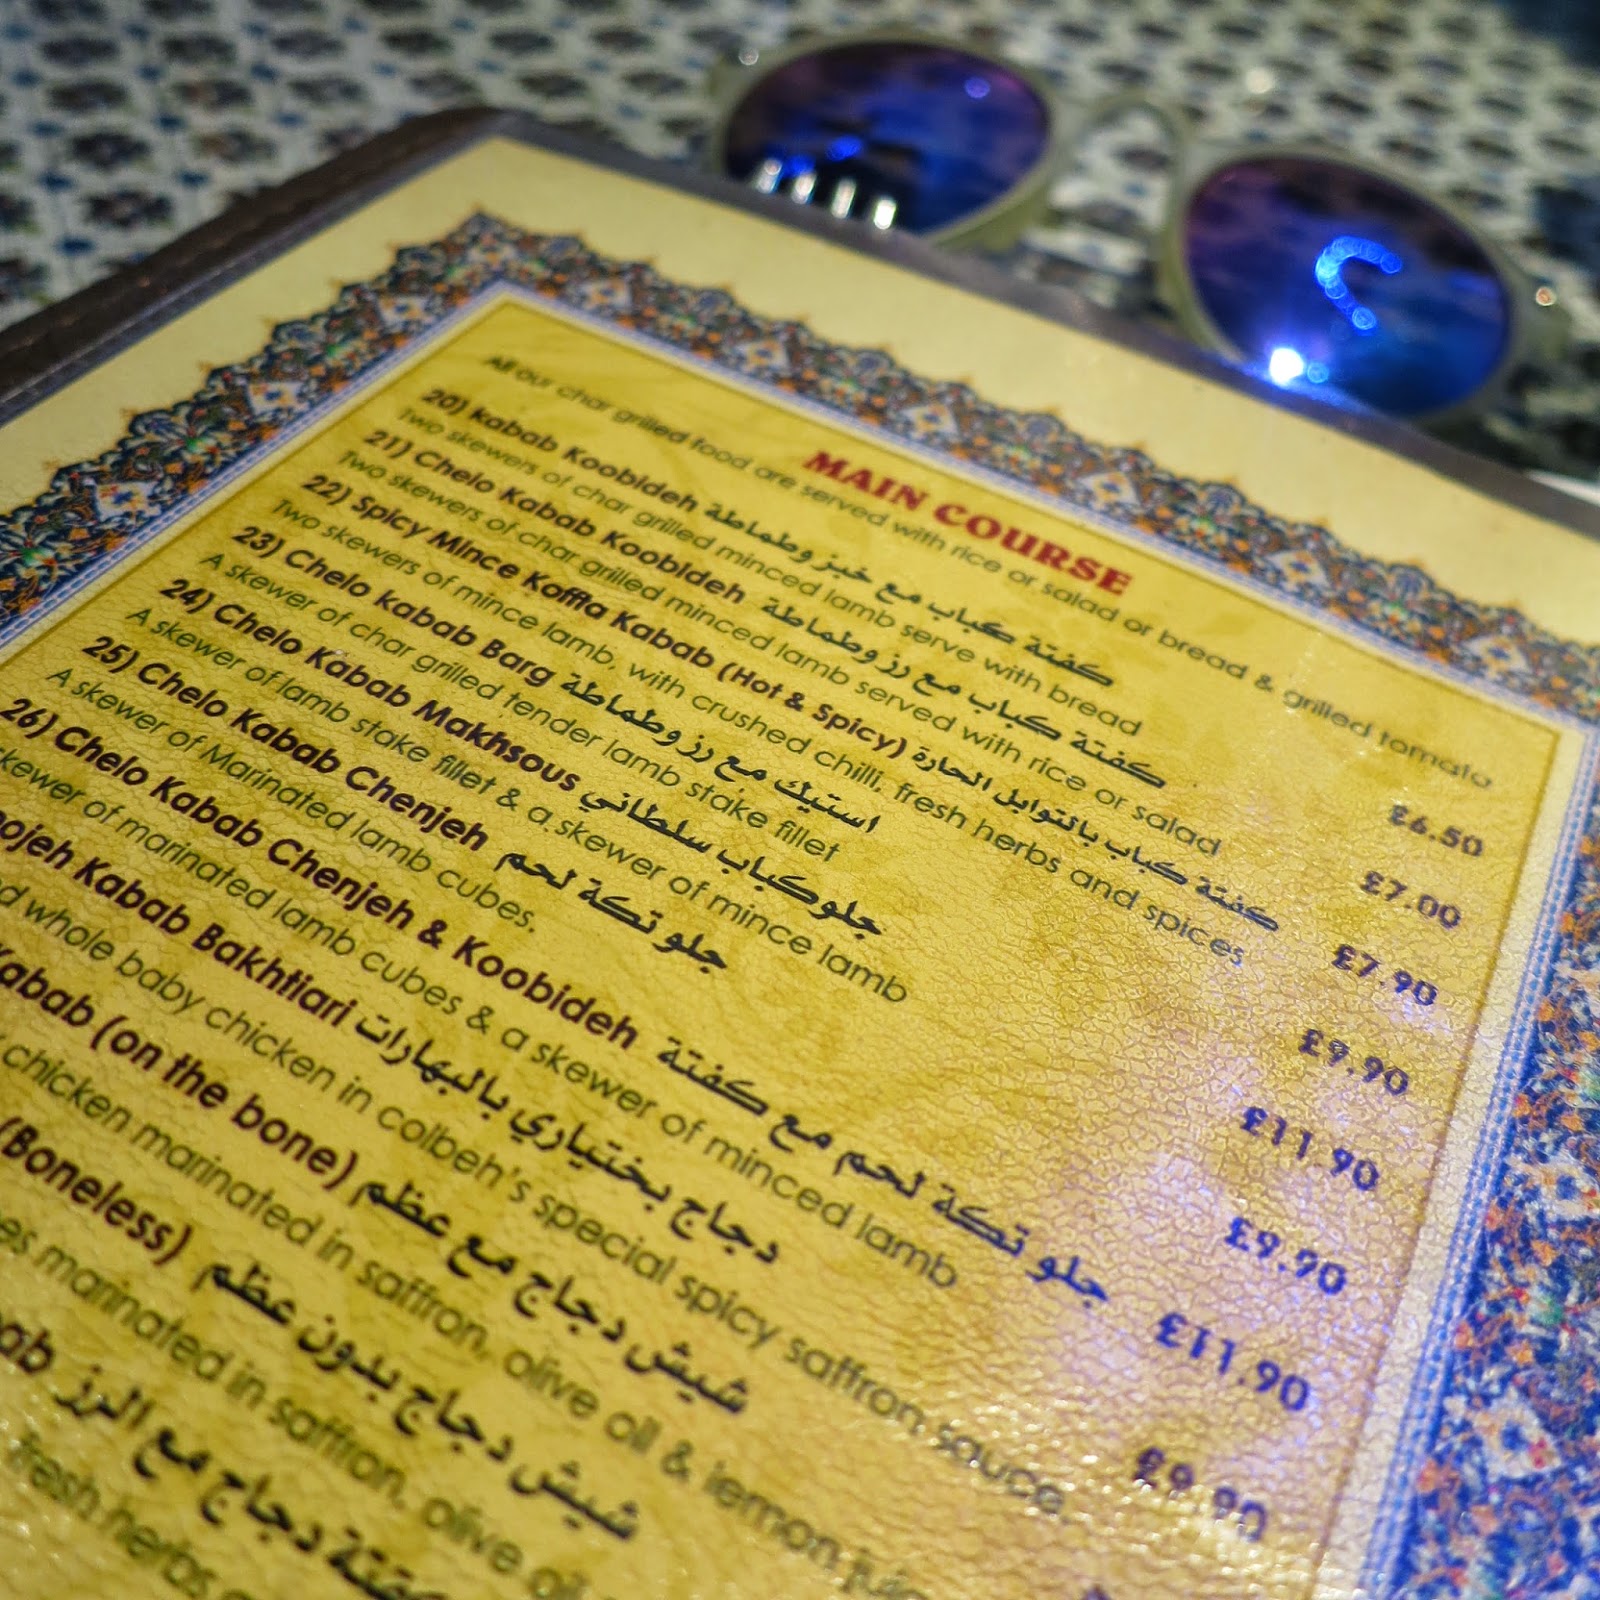 MAIN COURSE
All our char grilled food are served with rice or salad or bread & grilled tomato
20) Kabab Koobideh كفتة كباب مع خبز وطماطة £6.50
Two skewers of char grilled minced lamb serve with bread
21) Chelo Kabab Koobideh كفتة كباب مع رز وطماطة £7.00
Two skewers of char grilled minced lamb served with rice or salad
22) Spicy Mince Koffta Kabab (Hot & Spicy) كفتة كباب بالتوابل الحارة £7.90
Two skewers of mince lamb, with crushed chilli, fresh herbs and spices
23) Chelo kabab Barg استيك مع رز وطماطة £9.90
A skewer of char grilled tender lamb stake fillet
24) Chelo Kabab Makhsous جلوكباب سلطاني £11.90
A skewer of lamb stake fillet & a skewer of mince lamb
25) Chelo Kabab Chenjeh جلو تكة لحم £9.90
A skewer of Marinated lamb cubes.
26) Chelo Kabab Chenjeh & Koobideh جلو تكة لحم مع كفتة £11.90
skewer of marinated lamb cubes & a skewer of minced lamb
Kabab Bakhtiari دجاج بختياري بالبهارات £9.90
whole baby chicken in colbeh's special spicy saffron sauce
Kabab (on the bone) شيش دجاج مع عظم
chicken marinated in saffron, olive oil & lemon
(Boneless) شيش دجاج بدون عظم
marinated in saffron, olive
كفتة دجاج مع الرز
fresh herbs